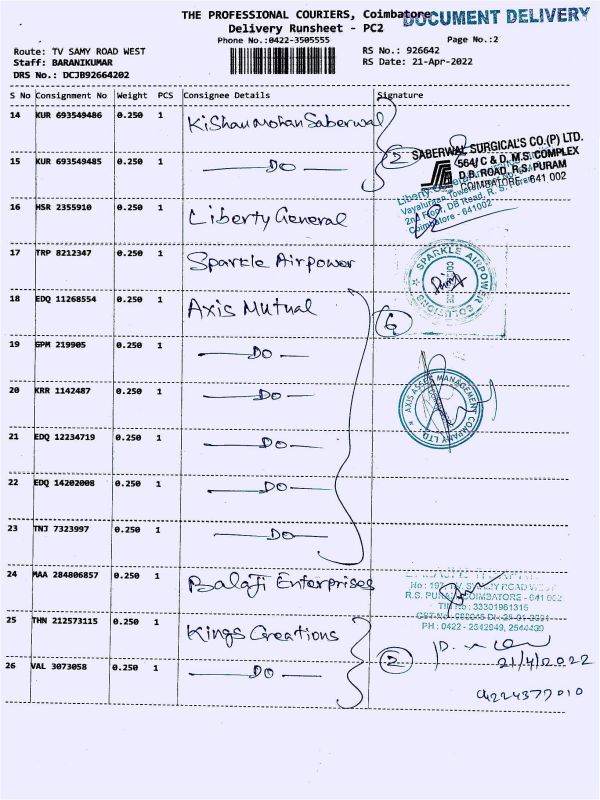 THE PROFESSIONAL COURIERS, Coimbatore
DOCUMENT DELIVERY
Delivery Runsheet - PC2
Phone No.:0422-3505555
Page No.:2
Route: TV SAMY ROAD WEST
RS No.: 926642
Staff: BARANIKUMAR
RS Date: 21-Apr-2022
DRS No.: DCJB92664202
S No Consignment No Weight PCS Consignee Details Signature
14 KUR 693549486 0.250 1 Kishan Mohan Saberwal
15 KUR 693549485 0.250 1 DO
2
SABERWAL SURGICAL'S CO.(P) LTD.
564/ C & D, M.S. COMPLEX
D.B. ROAD, R.S. PURAM
COIMBATORE - 641 002
Liberty General
2nd Floor, DB Road, R. S. Puram
Coimbatore - 641002
16 HSR 2355910 0.250 1 Liberty General
17 TRP 8212347 0.250 1 Sparkle Airpower
SPARKLE AIRPOWER SOLUTIONS
18 EDQ 11268554 0.250 1 Axis Mutual
6
19 GPM 219905 0.250 1 DO
20 KRR 1142487 0.250 1 DO
AXIS ASSET MANAGEMENT COMPANY LTD.
21 EDQ 12234719 0.250 1 DO
22 EDQ 14202008 0.250 1 DO
23 TNJ 7323997 0.250 1 DO
24 MAA 284806857 0.250 1 Balaji Enterprises
R.S. PURAM, COIMBATORE - 641 002
TIN No : 33301961315
PH : 0422 - 2542949, 2544409
25 THN 212573115 0.250 1 Kings Creations
26 VAL 3073058 0.250 1 DO
2
21/4/2022